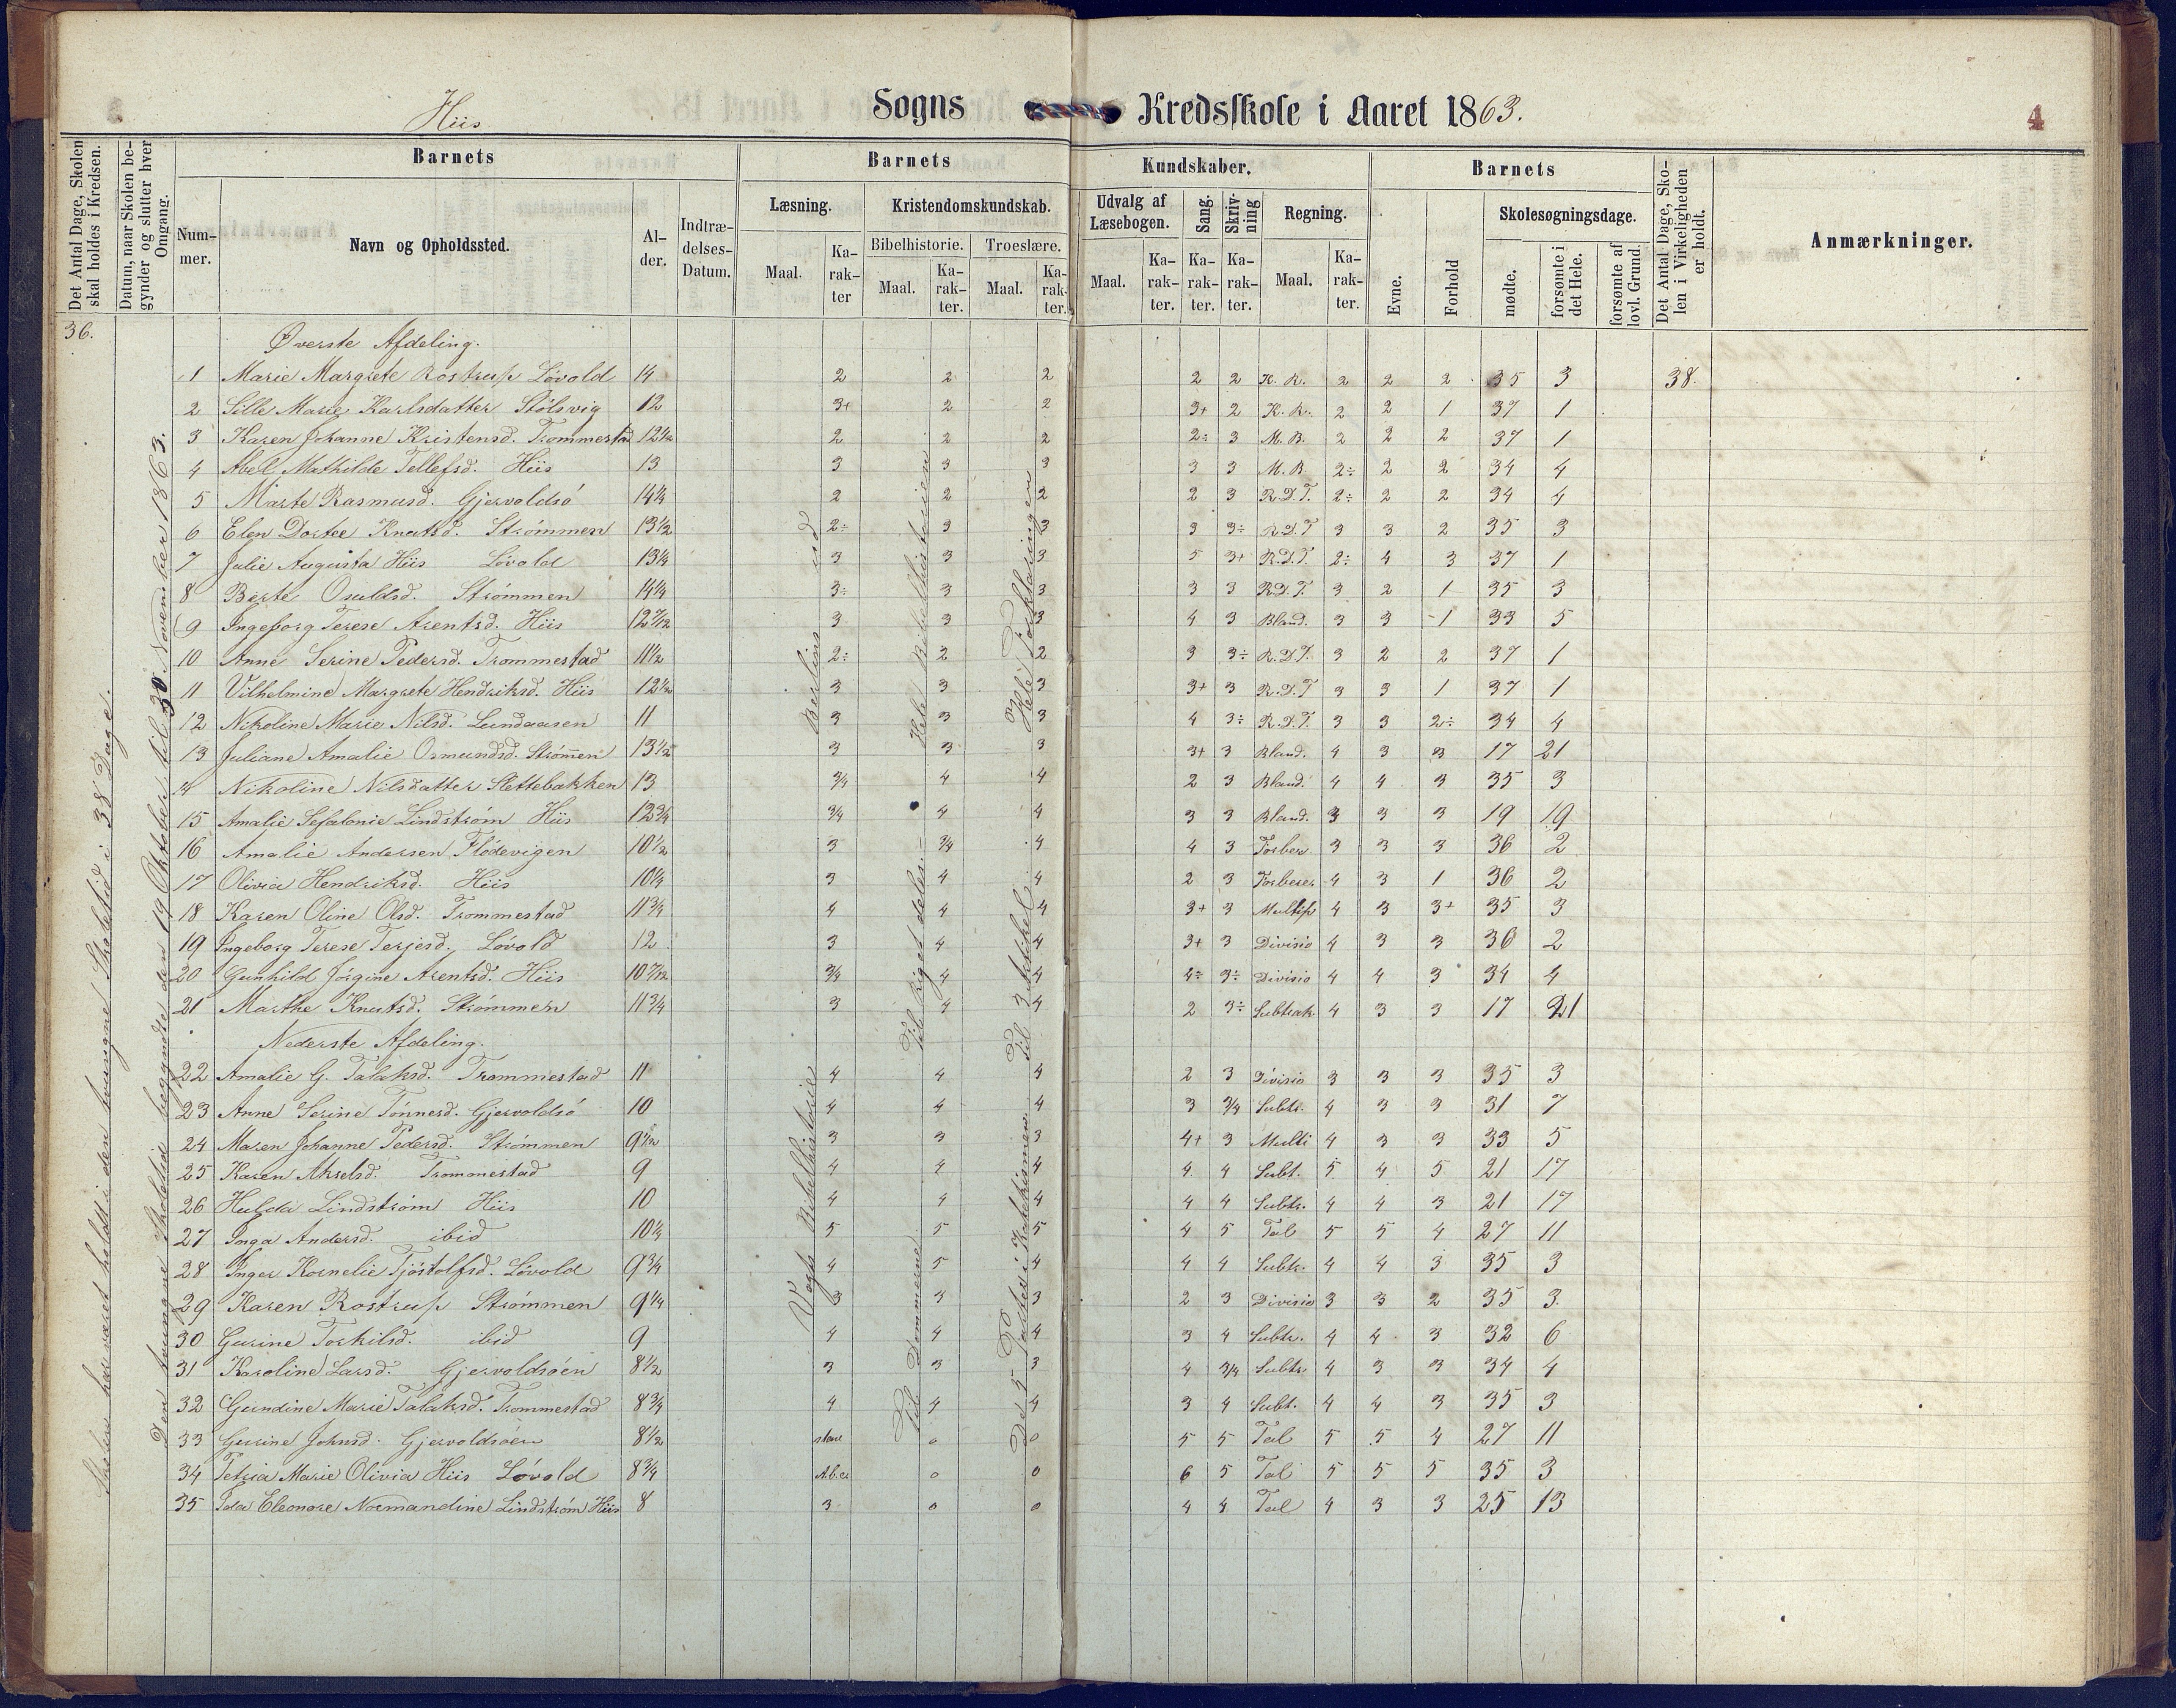 Hiis Sogns Kredsskole i Aaret 1863.
4
Det Antal Dage, Skolen skal holdes i Kredsen.
Datum, naar Skolen begynder og slutter hver Omgang.
Barnets
Nummer.
Navn og Opholdssted.
Alder.
Indtrædelses-Datum.
Barnets
Kundskaber.
Læsning.
Maal.
Karakter
Kristendomskundskab.
Bibelhistorie.
Maal.
Karakter.
Troeslære.
Maal.
Karakter.
Udvalg af Læsebogen.
Maal.
Karakter.
Sang.
Karakter.
Skrivning
Karakter.
Regning.
Maal.
Karakter.
Barnets
Evne.
Forhold
Skolesøgningsdage.
mødte.
forsømte i det Hele.
forsømte af lovl. Grund.
Det Antal Dage, Skolen i Virkeligheden er holdt.
Anmærkninger.
36.
Skolen har været holdt i den tvungne Skoletid i 38 Dage.
Den tvungne Skoletid begyndte den 19 Oktober til 30 November 1863.
Øverste Afdeling.
1 Marie Margrete Rostrup Lövold 14 2 2 2 2 2 K. R. 2 2 2 35 3 38.
2 Sille Marie Karlsdatter Stölsvig 12 3+ 2 2 3+ 2 K. R. 2 2 1 37 1
3 Karen Johanne Kristensd. Trommestad 12 1/2 2 2 2 2÷ 3 M. B. 2 2 2 37 1
4 Abel Mathilde Tellefsd. Hiis 13 3 3 3 3 3 M. B. 2÷ 2 2 34 4
5 Marte Rasmusd. Gjervoldsö 14 1/4 2 2 2 2 3 R. D. T. 2÷ 2 2 34 4
6 Elen Dortee Knutsd. Strömmen 13 1/2 2÷ 3 3 3 3÷ R. D. T 3 3 2 35 3
7 Julie Augusta Hiis Lövold 13 1/4 3 3 3 5 3+ R. D. T. 2÷ 4 3 37 1
8 Berte Osuldsd. Strömmen 14 1/4 3÷ 3 3 3 3 R D. T. 3 2 1 35 3
9 Ingeborg Terese Arentsd. Hiis 12 7/12 3 3 3 4 3 Bland. 3 3 1 33 5
10 Anne Serine Pedersd. Trommestad 11 1/2 2÷ 2 2 3 3÷ R. D. T. 3 2 2 37 1
11 Vilhelmine Margrete Hendriksd. Hiis 12 1/2 3 3 3 3+ 3 R. D. T 3 3 1 37 1
12 Nikoline Marie Nilsd. Lundaasen 11 3 3 3 4 3÷ R. D. T. 3 3 2÷ 34 4
13 Juliane Amalie Osmundsd. Strömen 13 1/2 3 3 3 3+ 3 Bland. 4 3 3 17 21
14 Nikoline Nilsdatter Slettebakken 13 3/4 4 4 2 3 Bland. 4 4 3 35 3
15 Amalie Sefalonie Lindström Hiis 12 3/4 3/4 4 4 3 3 Bland. 3 3 3 19 19
16 Amalie Andersen Flödevigen 10 1/2 3 3/4 4 4 3 Forber. 3 3 3 36 2
17 Olivia Hendriksd. Hiis 10 1/4 3 4 4 2 3 Forberer 4 3 1 36 2
18 Karen Oline Olsd. Trommestad 11 3/4 4 4 4 3+ 3 Multip 4 3 3+ 35 3
19 Ingeborg Terese Terjesd. Lövold 12 3 4 4 3+ 3 Divisio 4 3 3 36 2
20 Gunhild Jörgine Arentsd. Hiis 10 7/12 3/4 4 4 4÷ 3÷ Divisio 4 4 3 34 4
21 Marthe Knutsd. Strömmen 11 3/4 3 4 4 2 3÷ Subtrak 4 3 3 17 21
Berlins
Hele Bibelhistorien
Hele Forklaringen
Til Riget deles.
Til 3 Artikel
Nederste Afdeling.
22 Amalie G. Talaksd. Trommestad 11 4 4 4 2 3 Divisio 3 3 3 35 3
23 Anne Serine Tönnesd. Gjervoldsö 10 4 4 4 3 3/4 Subtr. 4 3 3 31 7
24 Maren Johanne Pedersd. Strömmen 9 1/2 3 3 3 4+ 3 Multi 4 3 3 33 5
25 Karen Akselsd. Trommestad 9 4 4 4 4 4 Subt. 5 4 5 21 17
26 Hulda Lindström Hiis 10 4 4 4 4 4 Subtr. 4 4 3 21 17
27 Inga Andersd. ibid 10 1/4 5 5 5 4 5 Tal 5 5 4 27 11
28 Inger Kornelie Tjöstolfsd. Lövold 9 3/4 4 5 4 4 4 Subtr. 4 4 3 35 3
29 Karen Rostrup Strömmen 9 1/4 3 3 3 2 3 Divisio 3 3 2 35 3
30 Gurine Torkilsd. ibid 9 4 4 4 3 4 Subtr. 4 4 3 32 6
31 Karoline Larsd. Gjervoldsöen 8 1/2 3 3 3 4 3/4 Subtr 4 3 3 34 4
32 Gundine Marie Talaksd. Trommestad 8 3/4 4 4 4 3 4 Subt. 4 4 3 35 3
33 Gurine Johnsd. Gjervoldsöen 8 1/2 stave 0 0 5 5 Tal 5 5 4 27 11
34 Petria Marie Olivia Hiis Lövold 8 3/4 Abc 0 0 6 5 Tal 5 5 5 35 3
35 Ida Eleonore Normandine Lindström Hiis 8 3 0 0 4 4 Tal 4 3 3 25 13
Vogts Bibelhistorie
Til Dommerne
De 5 Parter i Katekismen